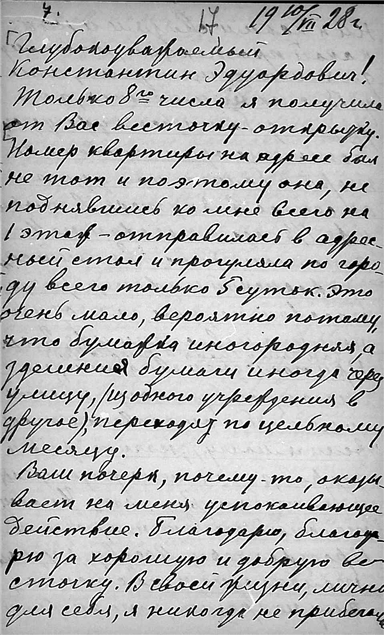 7. 17 19 10/VII 28 г.
Глубокоуважаемый
Константин Эдуардович!
Только 8го числа я получила
от Вас весточку-открытку.
Номер квартиры на адресе был
не тот и поэтому она, не
поднявшись ко мне всего на
1 этаж – отправилась в адрес-
ный стол и прогуляла по горо-
ду всего только 5 суток. Это
очень мало, вероятно потому,
что бумажка иногородняя, а
здешния бумаги иногда через
улицу, (из одного учреждения в
другое) переходят по цельному
месяцу.
Ваш почерк, почему-то, оказы-
вает на меня успокаивающее
действие. Благодарю, благода-
рю за хорошую и добрую ве-
сточку. В своей жизни, лично
для себя, я никогда не прибегаю